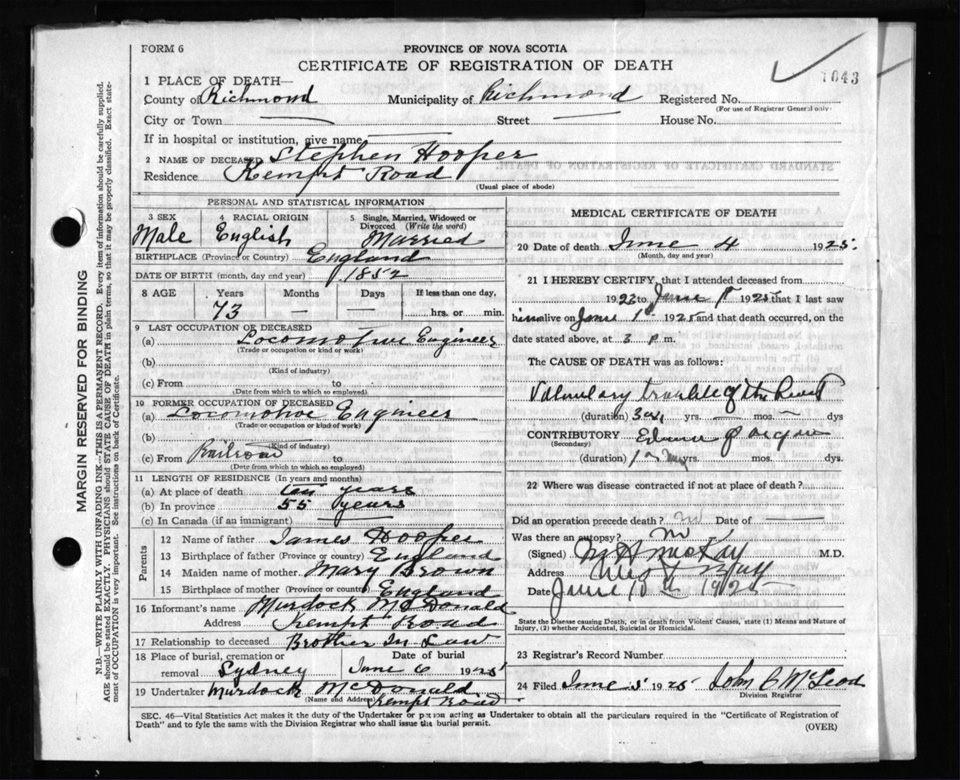 FORM 6
PROVINCE OF NOVA SCOTIA
CERTIFICATE OF REGISTRATION OF DEATH
1043
1 PLACE OF DEATH—
County of Richmond Municipality of Richmond Registered No.
(For use of Registrar General only)
City or Town — Street — House No.
If in hospital or institution, give name —
2 NAME OF DECEASED Stephen Hooper
Residence Kempt Road
(Usual place of abode)
PERSONAL AND STATISTICAL INFORMATION
3 SEX 4 RACIAL ORIGIN 5 Single, Married, Widowed or Divorced (Write the word)
Male English Married
BIRTHPLACE (Province or Country) England
DATE OF BIRTH (month, day and year) 1852
8 AGE Years Months Days If less than one day,
73 — — hrs. or min.
9 LAST OCCUPATION OF DECEASED
(a) Locomotive Engineer
(Trade or occupation or kind of work)
(b)
(Kind of industry)
(c) From to
(Date from which to which so employed)
10 FORMER OCCUPATION OF DECEASED
(a) Locomotive Engineer
(Trade or occupation or kind of work)
(b)
(Kind of industry)
(c) From Railroad to
(Date from which to which so employed)
11 LENGTH OF RESIDENCE (In years and months)
(a) At place of death ten years
(b) In province 55 years
(c) In Canada (if an immigrant) —
Parents
12 Name of father James Hooper
13 Birthplace of father (Province or country) England
14 Maiden name of mother Mary Brown
15 Birthplace of mother (Province or country) England
16 Informant's name Murdock McDonald
Address Kempt Road
17 Relationship to deceased Brother In Law
18 Place of burial, cremation or removal Date of burial
Sydney June 6 1925
19 Undertaker Murdock McDonald
(Name and Address) Kempt Road
MEDICAL CERTIFICATE OF DEATH
20 Date of death June 4 1925
(Month, day and year)
21 I HEREBY CERTIFY, that I attended deceased from
1922 to June 1st 1925 that I last saw
him alive on June 1st 1925 and that death occurred, on the
date stated above, at 3 p.m.
The CAUSE OF DEATH was as follows:
Valvulary trouble of the heart
(duration) 3 yrs. mos. — dys
CONTRIBUTORY
(Secondary)
(duration) yrs. mos. dys.
22 Where was disease contracted if not at place of death?
Did an operation precede death? no Date of —
Was there an autopsy? no
(Signed) McKay M.D.
Address
Date June 1925
State the Disease causing Death; or in death from Violent Causes, state (1) Means and Nature of Injury, (2) whether Accidental, Suicidal or Homicidal.
23 Registrar's Record Number
24 Filed June 5 1925 John McLeod
Division Registrar
SEC. 46—Vital Statistics Act makes it the duty of the Undertaker or person acting as Undertaker to obtain all the particulars required in the "Certificate of Registration of
Death" and to fyle the same with the Division Registrar who shall issue the burial permit.
(OVER)
MARGIN RESERVED FOR BINDING
N.B.—WRITE PLAINLY WITH UNFADING INK—THIS IS A PERMANENT RECORD. Every item of information should be carefully supplied.
AGE should be stated EXACTLY. PHYSICIANS should STATE CAUSE OF DEATH in plain terms, so that it may be properly classified. Exact state-
ment of OCCUPATION is very important. See instructions on back of Certificate.